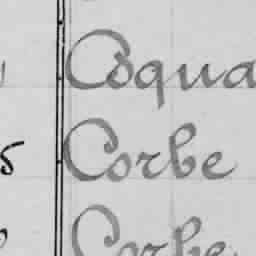 Coqua
5 Corbe
Corbe